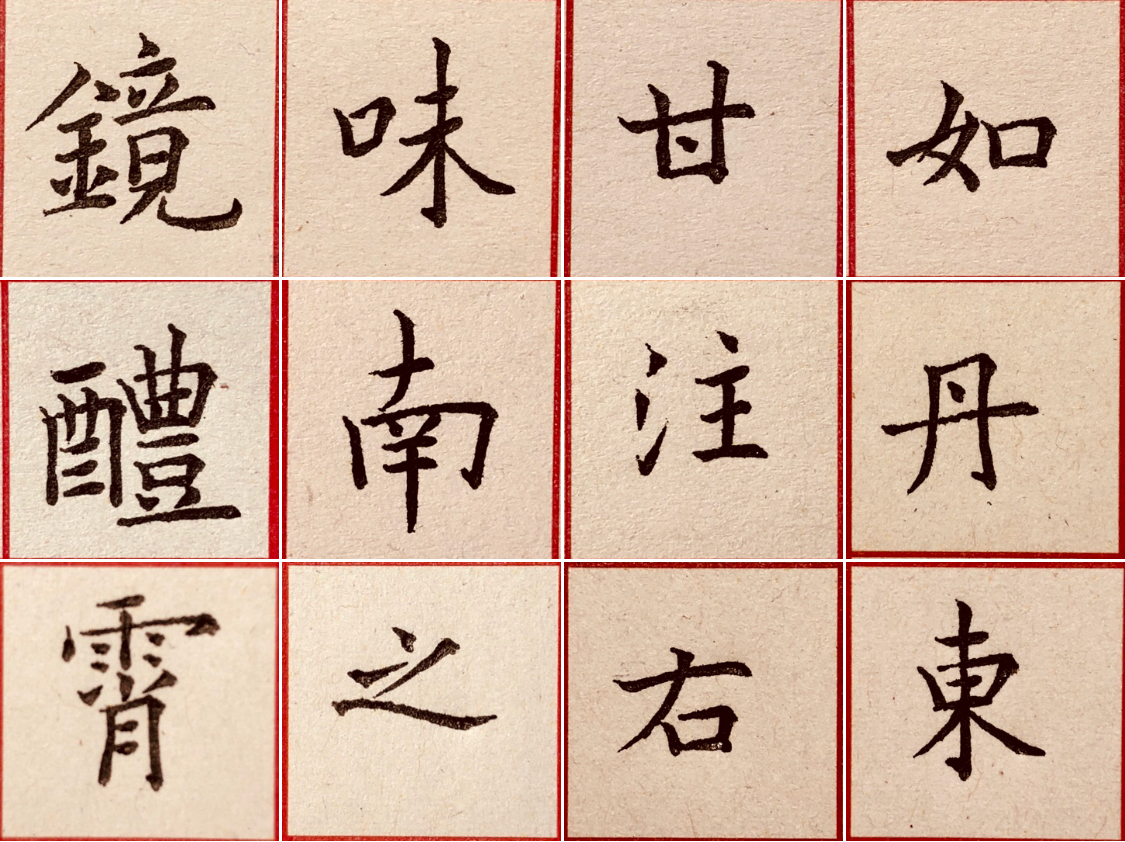 鏡味甘如
醴南注丹
霄之右東